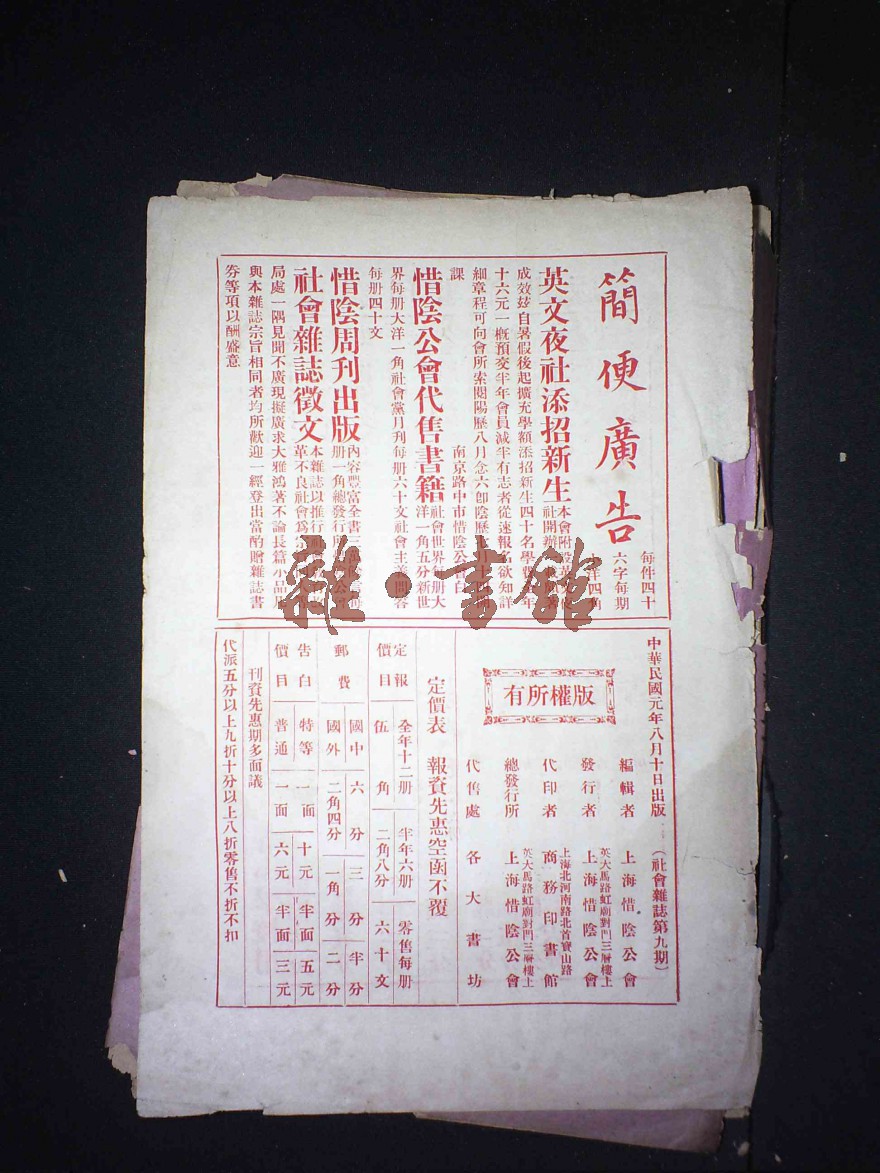 簡便廣告
每件四十
六字每期
洋四角
英文夜社添招新生
本會附設英文夜
社開辦
成效玆自暑假後起擴充學額添招新生四十名學費
年
十六元一概預交半年會員減半有志者從速報名欲知詳
細章程可向會所索閱陽歷八月念六卽陰歷七月十四開
課
南京路中市惜陰公會白
惜陰公會代售書籍
社會世界每册大
洋一角五分新世
界每册大洋一角社會黨月刊每册六十文社會主義問答
每册四十文
惜陰周刊出版
內容豐富全書三
册一角總發行
社會雜誌徵文
本雜誌以推行
革不良社會爲宗
局處一隅見聞不廣現擬廣求大雅鴻著不論長篇小品凡
與本雜誌宗旨相同者均所歡迎一經登出當酌贈雜誌書
券等項以酬盛意
中華民國元年八月十日出版
(社會雜誌第九期)
版權所有
編輯者 上海惜陰公會
英大馬路虹廟對門三層樓上
發行者 上海惜陰公會
上海北河南路北首寶山路
代印者 商務印書館
英大馬路虹廟對門三層樓上
總發行所 上海惜陰公會
代售處 各大書坊
定價表 報資先惠空函不覆
定報價目 全年十二册 半年六册 零售每册
伍角 二角八分 六十文
郵費 國中 六分 三分 半分
國外 二角四分 一角二分 二分
告白價目 特等 一面 十元 半面 五元
普通 一面 六元 半面 三元
刊資先惠期多面議
代派五分以上九折十分以上八折零售不折不扣
雜·書館